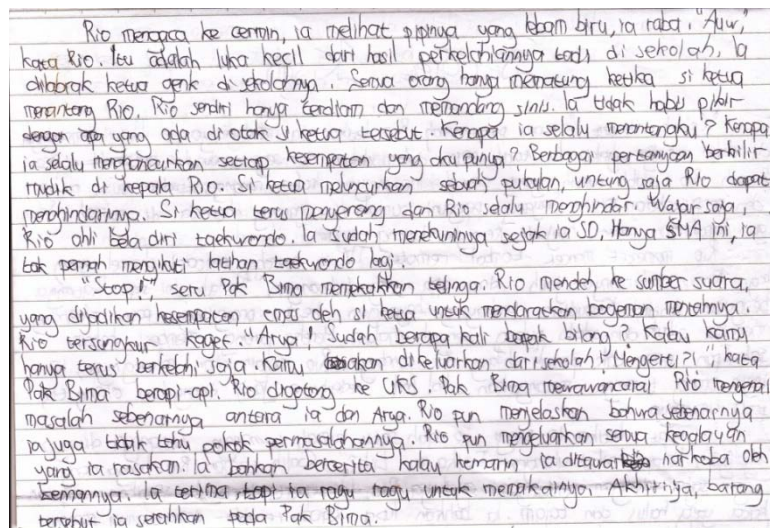 Rio mengaca ke cermin, ia melihat pipinya yang lebam biru, ia raba. "Auw,"
kata Rio. Itu adalah luka kecil dari hasil perkelahiannya tadi di sekolah, Ia
dilabrak ketua genk di sekolahnya. Semua orang hanya mematung ketika si ketua
menantang Rio. Rio sendiri hanya terdiam dan memandang sinis. Ia tidak habis pikir
dengan apa yang ada di otak si ketua tersebut. Kenapa ia selalu menantangku? Kenapa
ia selalu menghancurkan setiap kesempatan yang aku punya? Berbagai pertanyaan berkilir
mudik di kepala Rio. Si ketua meluncurkan sebuah pukulan, untung saja Rio dapat
menghindarinya. Si ketua terus menyerang dan Rio selalu menghindar. Wajar saja,
Rio ahli bela diri taekwondo. Ia sudah menekuninya sejak ia SD, Hanya SMA ini, ia
tak pernah mengikuti latihan taekwondo lagi.
"Stop!", seru Pak Bima memekakkan telinga. Rio menoleh ke sumber suara,
yang dijadikan kesempatan emas oleh si ketua untuk mendaratkan bogeman mentahnya.
Rio tersungkur kaget. "Arya! Sudah berapa kali bapak bilang? Kalau kamu
hanya terus berkelahi saja. Kamu akan dikeluarkan dari sekolah! Mengerti?!" kata
Pak Bima berapi-api. Rio digotong ke UKS. Pak Bima mewawancarai Rio mengenai
masalah sebenarnya antara ia dan Arya. Rio pun menjelaskan bahwa sebenarnya
ia juga tidak tahu pokok permasalahannya. Rio pun mengeluarkan semua kegalauan
yang ia rasakan. Ia bahkan bercerita kalau kemarin ia ditawari narkoba oleh
temannya. Ia terima, tapi ia ragu ragu, untuk memakainya. Akhirnya, barang
tersebut ia serahkan pada Pak Bima.